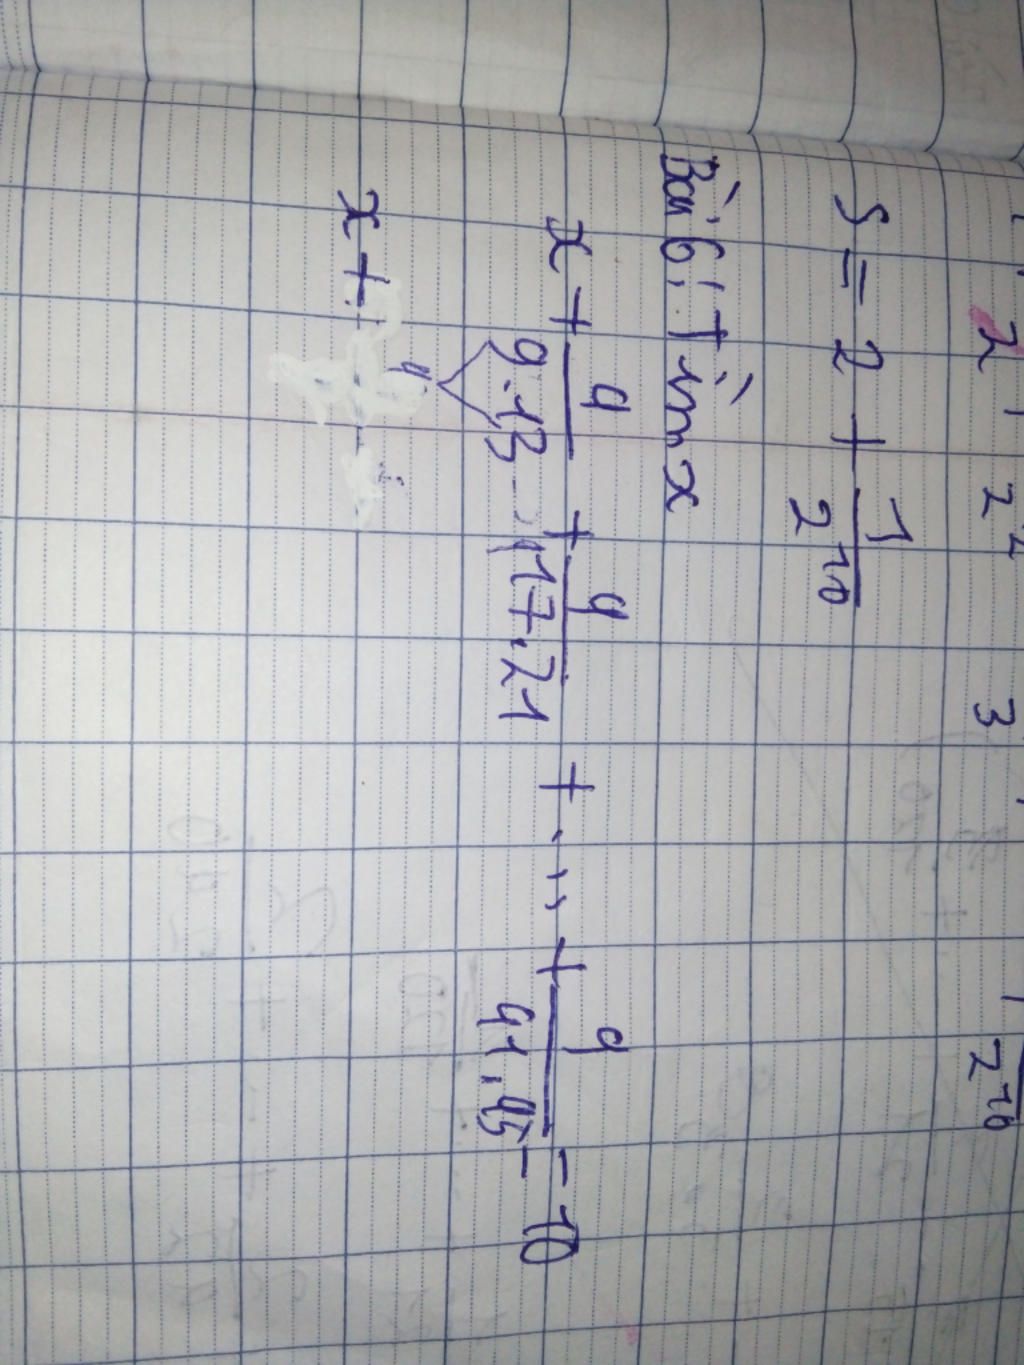 2 2² 3 2¹⁰
S = 2 + 1/2¹⁰
Bài 6: Tìm x
x + 4/9.13 + 4/17.21 + ... + 4/41.45 = 10
4
x +